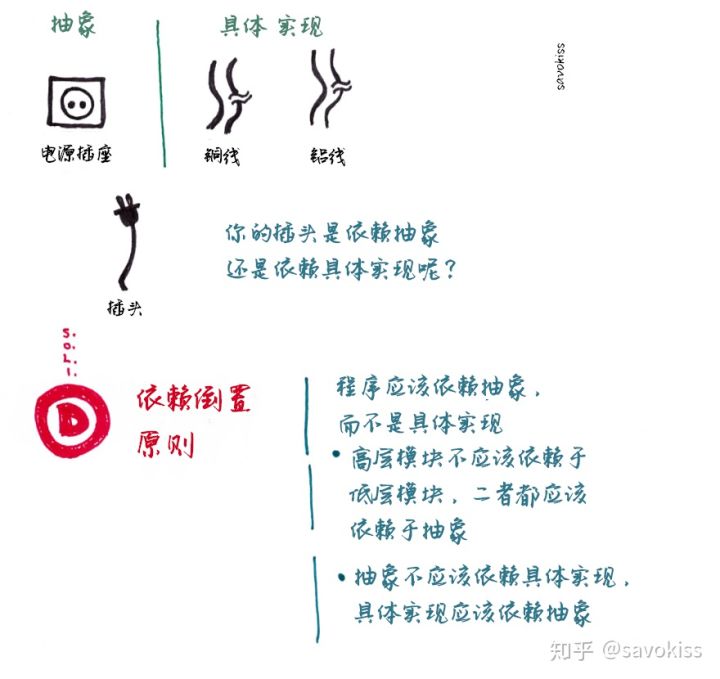 抽象
具体实现
savokiss
电源插座
铜线
铝线
你的插头是依赖抽象
还是依赖具体实现呢？
插头
S.
O.
L.
I.
D
依赖倒置
原则
程序应该依赖抽象，
而不是具体实现
• 高层模块不应该依赖于
低层模块，二者都应该
依赖于抽象
• 抽象不应该依赖具体实现，
具体实现应该依赖抽象
知乎 @savokiss